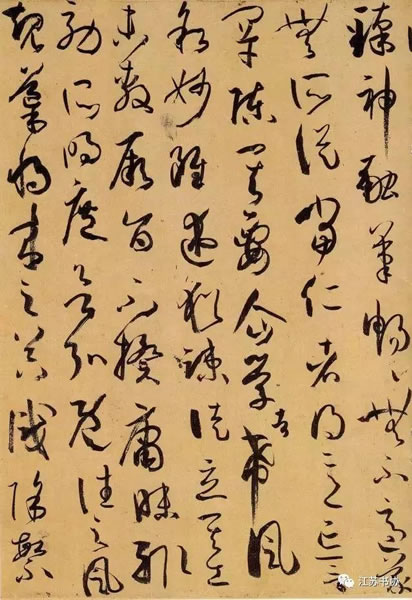 臻神融筆暢暢無不適蒙
無所從當仁者得意忘言
罕陳其要企學者希風
敘妙雖述猶疎徒立其工
未敷厥旨不揆庸昧輒
效所明庶欲弘既往之風
規導將來之器識除繁
江苏书协